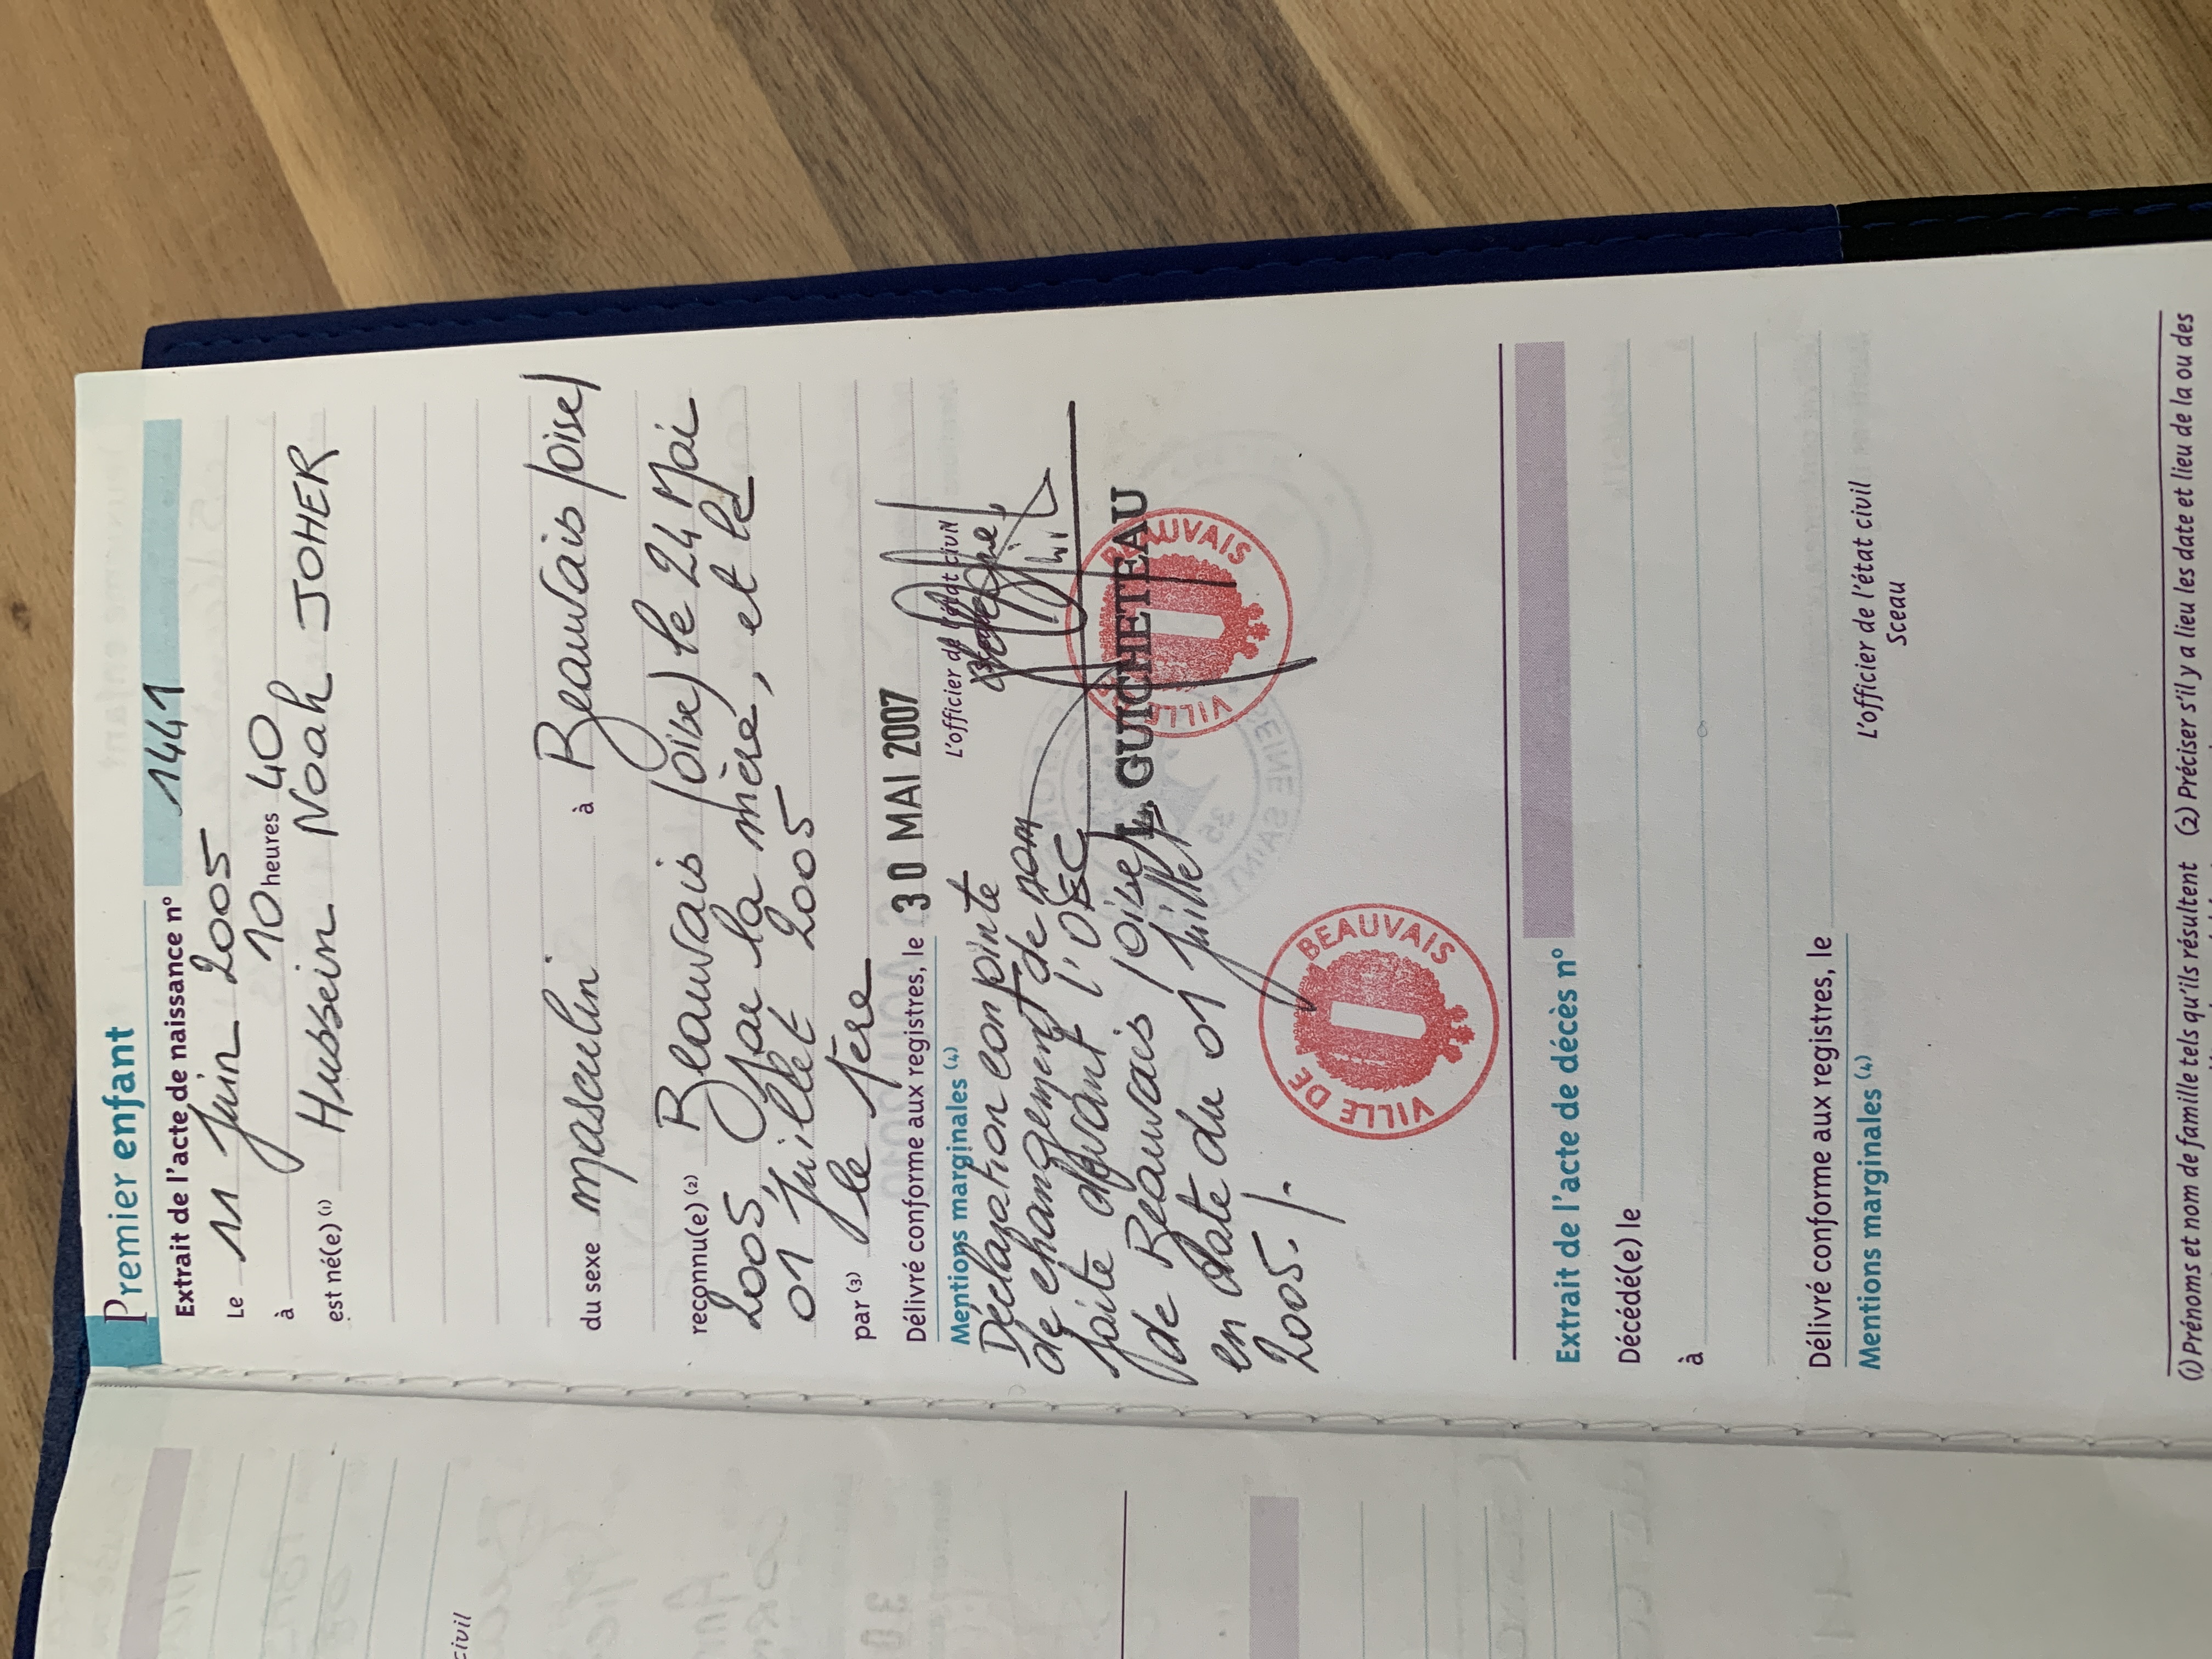 Premier enfant
Extrait de l'acte de naissance n° 1441
Le 11 Juin 2005
à 10 heures 40
est né(e) (1) Hussein Noah JOHER
du sexe masculin à Beauvais (oise)
reconnu(e) (2) Beauvais (oise) le 24 Mai
2005, par la mère, et le
01 Juillet 2005
par (3) le père
Délivré conforme aux registres, le 30 MAI 2007
Mentions marginales (4)
L'officier de l'état civil
Déclaration conjointe
de changement de nom
faite devant l'OEC
de Beauvais (oise)
en date du 01 Juillet
2005./.
L. GUICHETEAU
VILLE DE BEAUVAIS
VILLE DE BEAUVAIS
Extrait de l'acte de décès n°
Décédé(e) le
à
Délivré conforme aux registres, le
Mentions marginales (4)
L'officier de l'état civil
Sceau
(1) Prénoms et nom de famille tels qu'ils résultent (2) Préciser s'il y a lieu les date et lieu de la ou des
civil